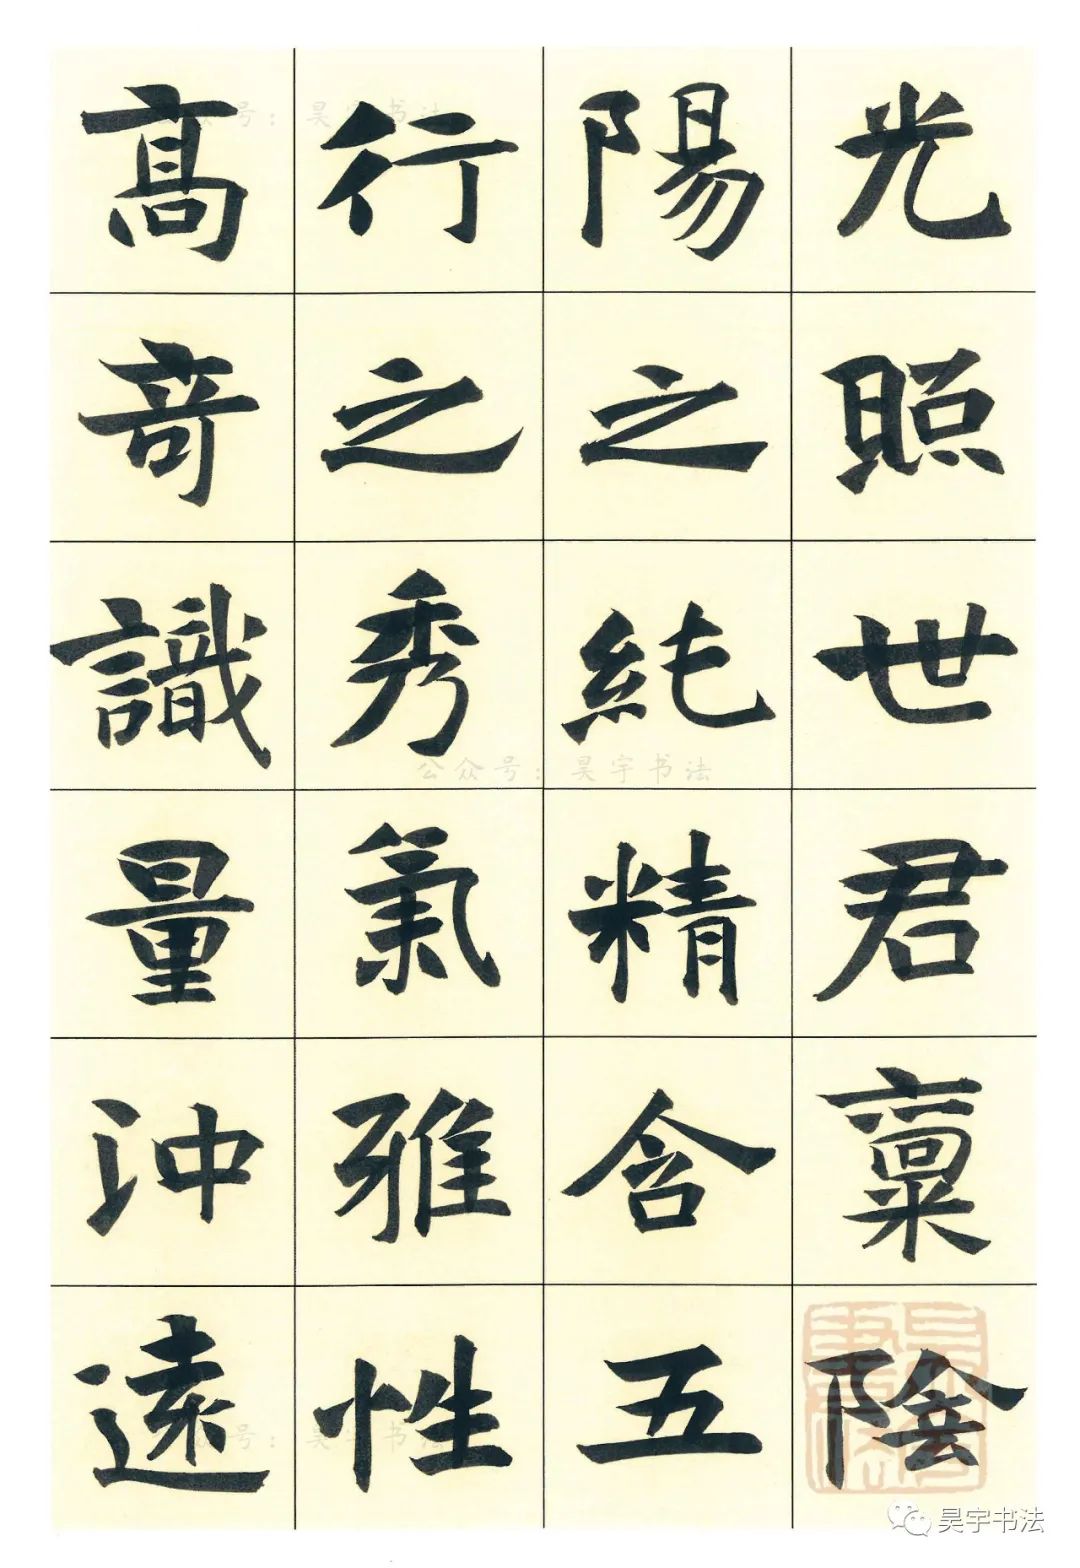 光照世君稟陰
陽之純精含五
行之秀氣雅性
高奇識量沖遠
公众号：昊宇书法
昊宇书法